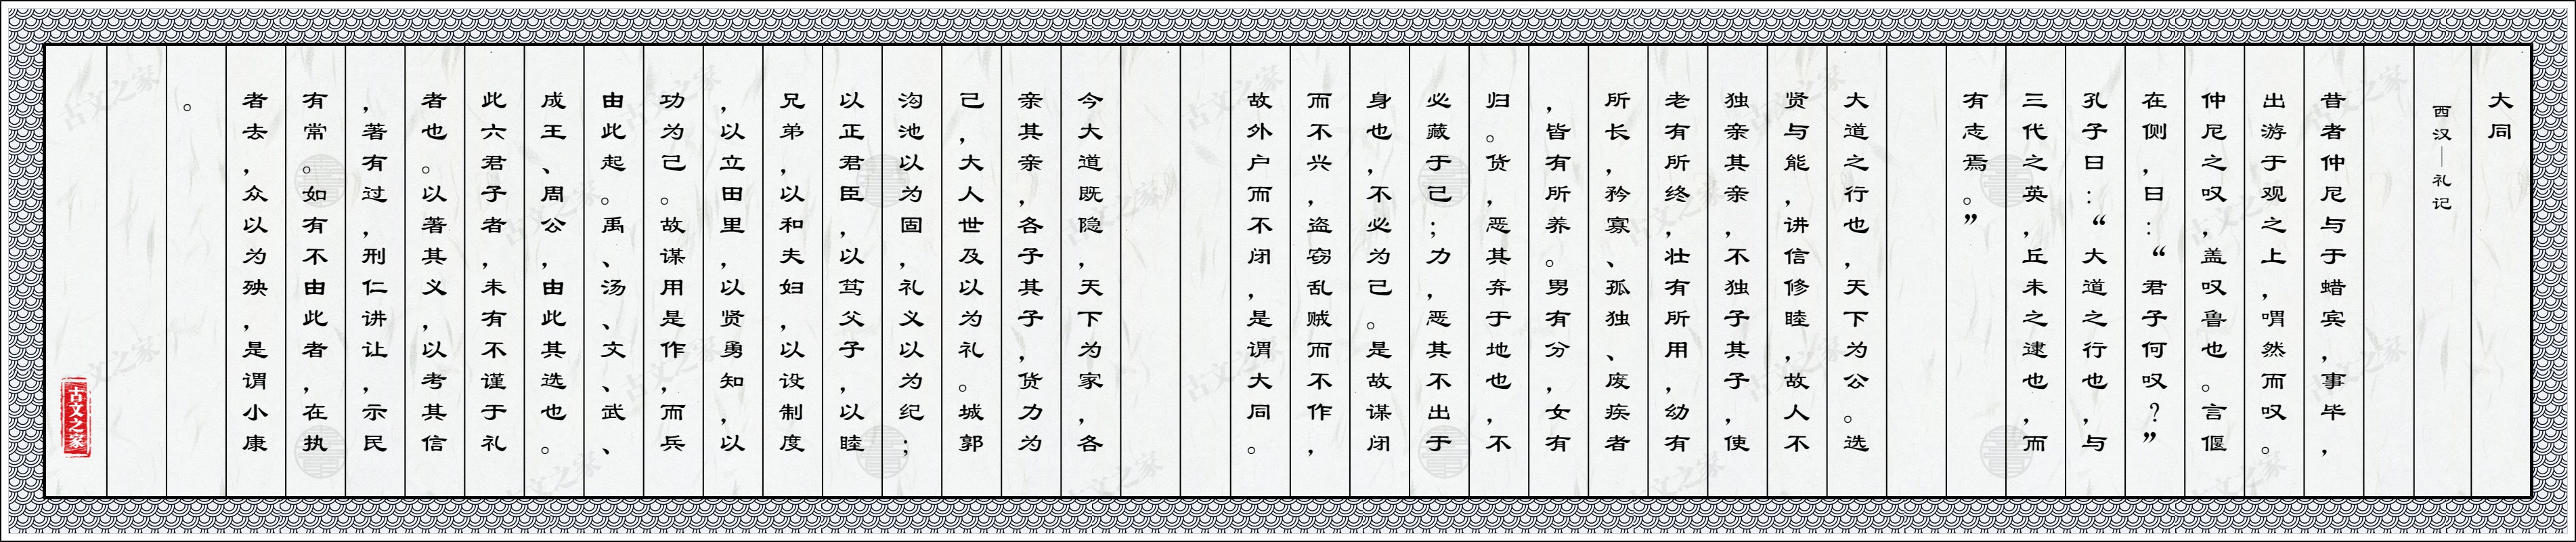 大同
西汉｜礼记
昔者仲尼与于蜡宾，事毕，
出游于观之上，喟然而叹。
仲尼之叹，盖叹鲁也。言偃
在侧，曰：“君子何叹？”
孔子曰：“大道之行也，与
三代之英，丘未之逮也，而
有志焉。”
大道之行也，天下为公。选
贤与能，讲信修睦，故人不
独亲其亲，不独子其子，使
老有所终，壮有所用，幼有
所长，矜寡、孤独、废疾者
，皆有所养。男有分，女有
归。货，恶其弃于地也，不
必藏于己；力，恶其不出于
身也，不必为己。是故谋闭
而不兴，盗窃乱贼而不作，
故外户而不闭，是谓大同。
今大道既隐，天下为家，各
亲其亲，各子其子，货力为
己，大人世及以为礼。城郭
沟池以为固，礼义以为纪；
以正君臣，以笃父子，以睦
兄弟，以和夫妇，以设制度
，以立田里，以贤勇知，以
功为己。故谋用是作，而兵
由此起。禹、汤、文、武、
成王、周公，由此其选也。
此六君子者，未有不谨于礼
者也。以著其义，以考其信
，著有过，刑仁讲让，示民
有常。如有不由此者，在执
者去，众以为殃，是谓小康
。
古文之家